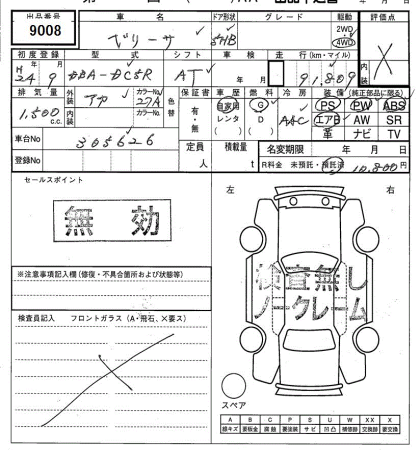 出品番号 車名 ドア形状 グレード 駆動 評価点
9008 ベリーサ 5HB 2WD 4WD
初度登録 型式 シフト 車検 走行(km・マイル)
H24 9 DBA-DC5R AT 年 月 91,809
排気量 外装 アカ カラーNo. 27A 色替 保証書 車歴 燃料 冷房 装備(純正部品に限る)
1,500 c.c. 内装 カラーNo. 有・無 自家用 G AAC PS PW ABS
レンタ D エアB AW SR
革 ナビ TV
車台No 305626 定員 人 積載量 t 名変期限 年 月 日
登録No. R料金 未預託・預託済 10,800円
セールスポイント
無効
左 右
検査無し
ノークレーム
※注意事項記入欄(修復・不具合箇所および状態等)
検査員記入 フロントガラス(A・飛石、×要ス)
スペア
A B C P S U W XX X
線キズ 要板金 腐蝕 要塗装 サビ 凹凸 補修跡 交換跡 要交換